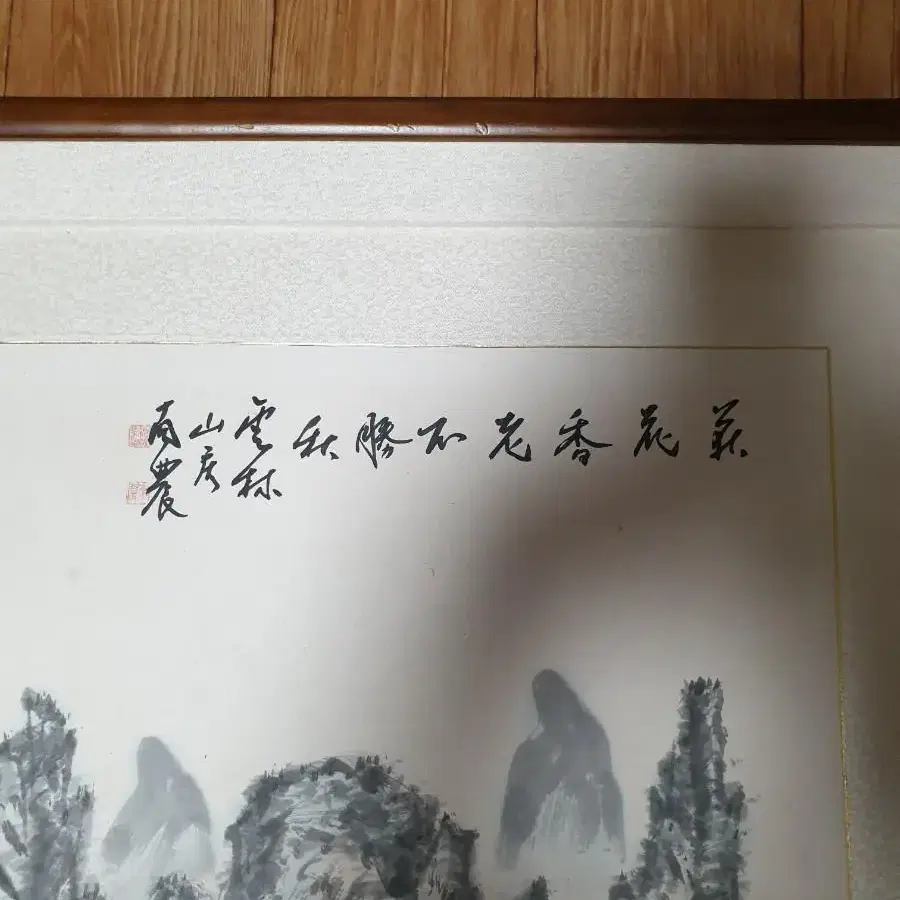 花香老不勝秋
雲林
山房
南農